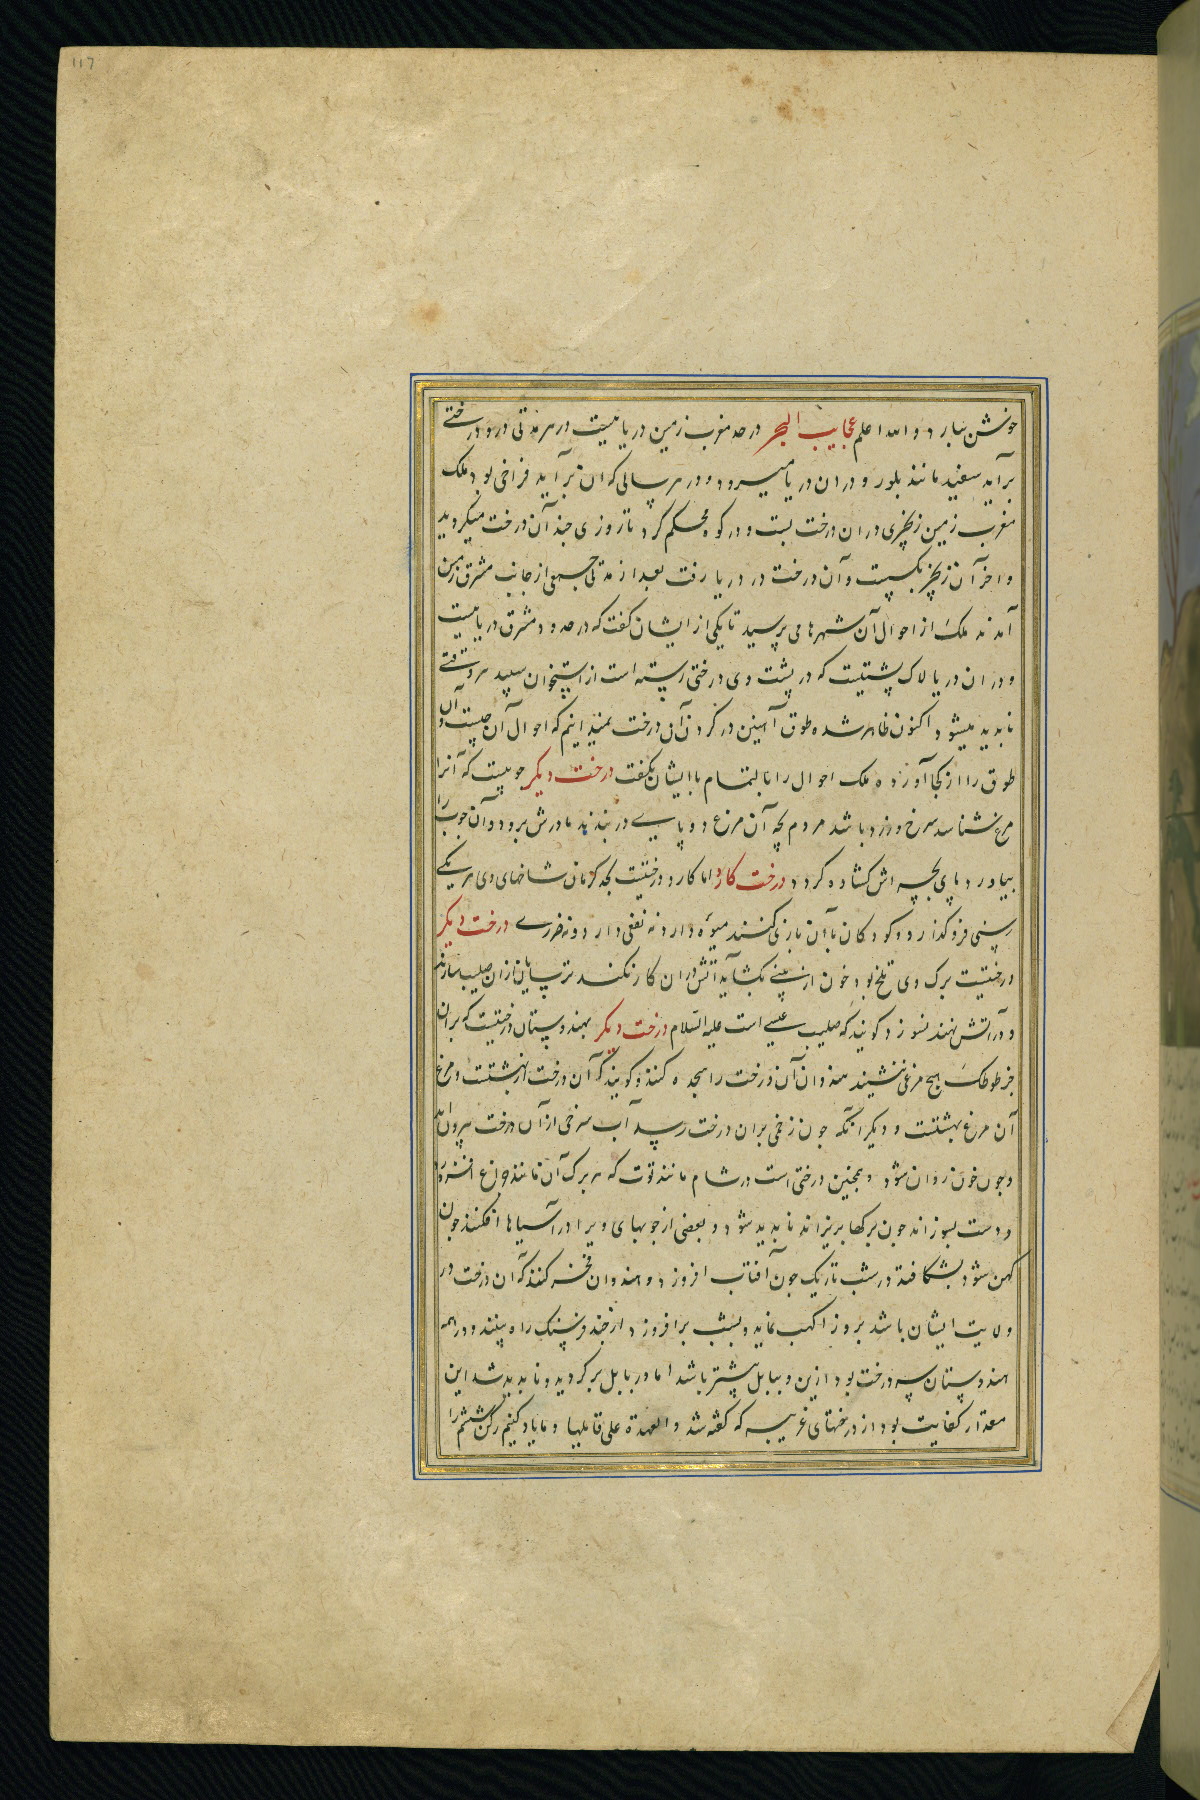 117
خونش ببارد و الله اعلم عجایب البحر در حد مغرب زمین دریائیست در هر مدتی در و درختی
برآید سفید مانند بلور و در ان دریا میرود و در هر سالی که ان برآید فراخی بود ملک
مغرب زمین زنجیری در ان درخت بست و در کوه محکم کرد تا روزی چند آن درخت میکردید
و اخر آن زنجیر بکسست و آن درخت در دریا رفت بعد از مدتی جمعی از جانب مشرق زمین
آمدند ملک از احوال آن شهرها می پرسید تا یکی از ایشان کفت که در حدود مشرق دریائیست
و در ان دریا لاک پشتیست که در پشت وی درختی رسته است از استخوان سپید هر وقتی
نابدید میشود اکنون ظاهر شده طوق آهنین در کردن آن درخت نمیدانیم که احوال آن چیست و آن
طوق را از کجا آورده ملک احوال را بالتمام با ایشان بکفت درخت دیکر چوبیست که آنرا
مرغ شناسد سرخ و زرد باشد مردم بچه آن مرغ دو پای در بندند مادرش برود و آن چوب را
بیاورد پای بچه اش کشاده کردد درخت کارد اما کارد درختیست بحد کرمان شاخهای وی هر یکی
رسنی فرو کذارد و کودکان با آن بازی کنند میوه دارد نه نفعی دارد و نه ضرری درخت دیکر
درختیست برک وی تلخ بود خون از بینی بکشاید آتش در ان کار نکند ترسایان از ان صلیب سازند
و در آتش نهند نسوزد کویند که صلیب عیسی است علیه السلام درخت دیکر بهندوستان درختیست که بران
جز طوطک هیچ مرغی ننشیند هندوان آن درخت را سجده کنند و کویند که آن درخت از بهشتست و مرغ
آن مرغ بهشتست و دیکر انکه چون زخمی بران درخت رسد آب سرخی از آن درخت بیرون آید
و چون خون روان شود و همچنین درختی است در شام مانند توت که هر برک آن مانند چراغ افروزد
و دست بسوزاند چون برکها بریزاند نابدید شود و بعضی از چوبهای ویرا در آسیاها افکنند چون
کهن شود بشکافند در شب تاریک چون آفتاب افروزد و هندوان فخر کنند که آن درخت در
ولایت ایشان باشد بروز اکهب نماید و بشب برافروزد از چند فرسنک راه بینند و در همه
هندوستان سه درخت بود ازین و ببابل بیشتر باشد اما در بابل برکردید و نابدید شد این
مقدار کفایت بود از درختهای غریب که کفته شد و العهدة علی قائلها و ما یاد کنیم رکن ششم را